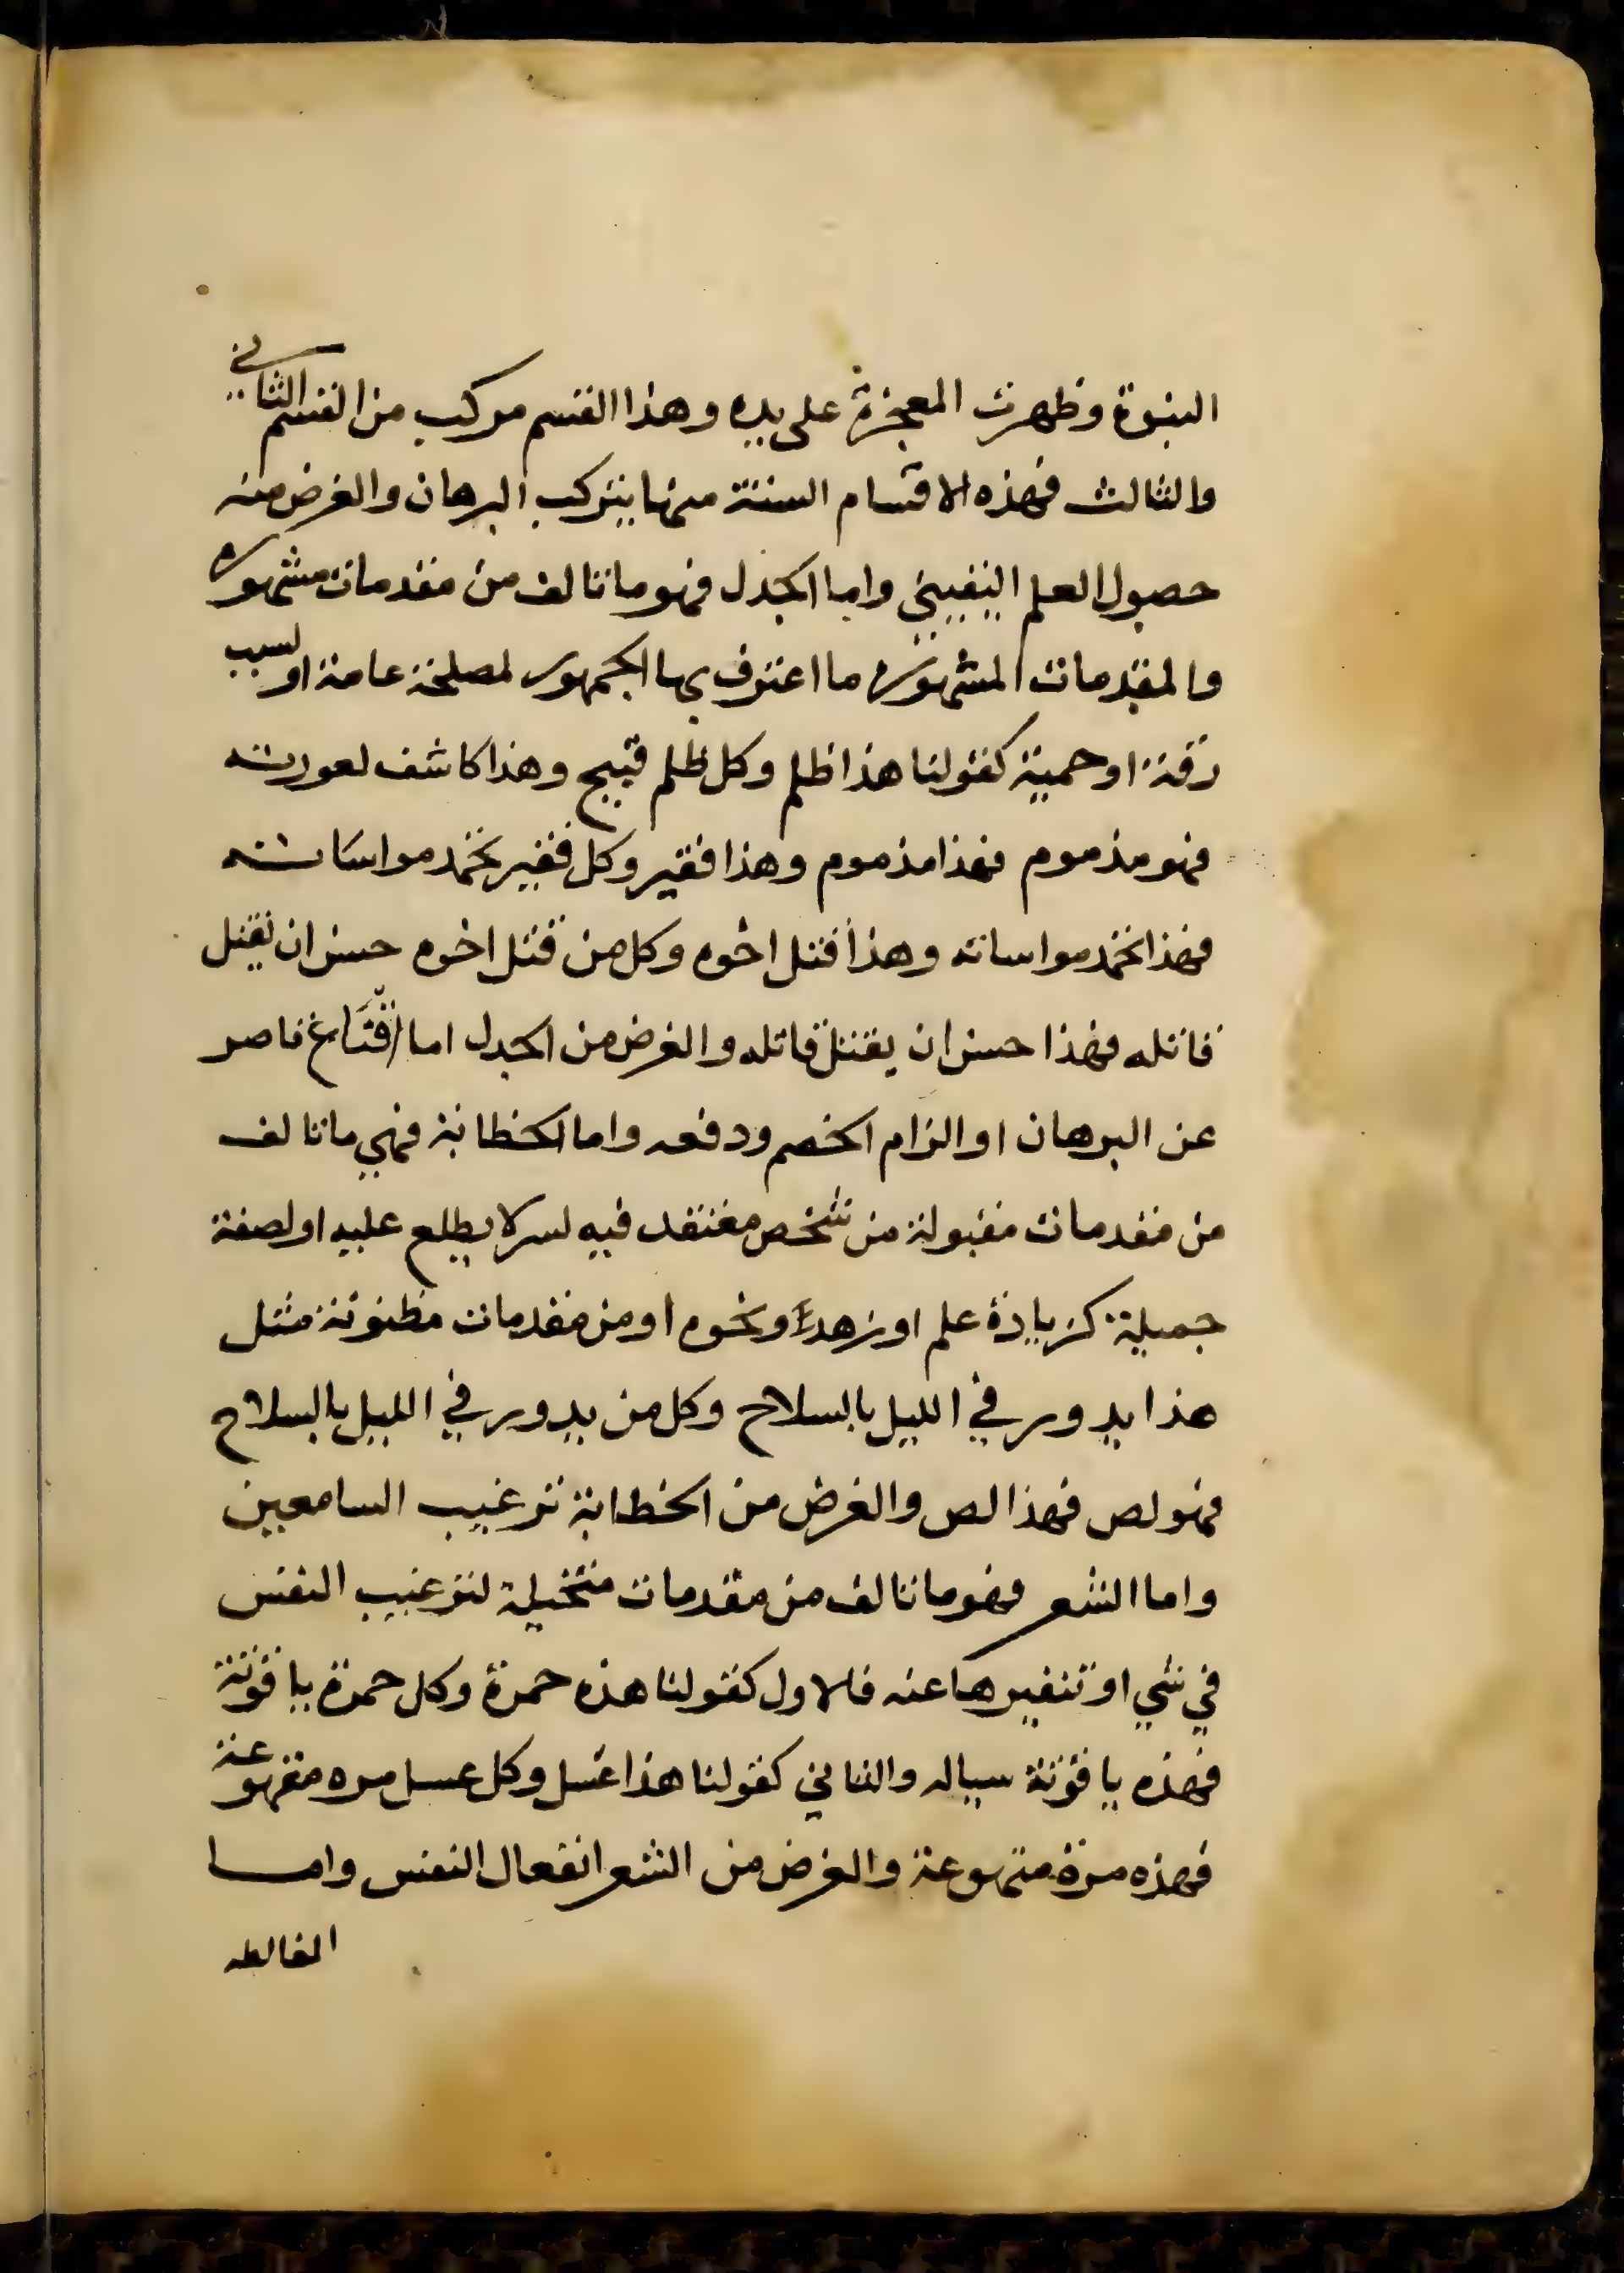 النبوة وظهرت المعجزة على يده وهذا القسم مركب من القسم الثاني
والثالث فهذه الاقسام الستة منها يتركب البرهان والغرض منه
حصول العلم اليقيني واما الجدل فهو ما تالف من مقدمات مشهوره
والمقدمات المشهوره ما اعترف بها الجمهور لمصلحة عامة او لسبب
رقة او حمية كقولنا هذا ظلم وكل ظلم قبيح وهذا كاشف لعورته
فهو مذموم فهذا مذموم وهذا فقير وكل فقير تحمد مواساته
فهذا تحمد مواساته وهذا قتل اخوه وكل من قتل اخوه حسن ان يقتل
قاتله فهذا حسن ان يقتل قاتله والغرض من الجدل اما اقناع قاصر
عن البرهان او الزام الخصم ودفعه واما الخطابة فهي ما تالف
من مقدمات مقبولة من شخص معتقد فيه لسر لا يطلع عليه او لصفة
جميلة كزيادة علم او زهد او نحوه او من مقدمات مظنونة مثل
هذا يدور في الليل بالسلاح وكل من يدور في الليل بالسلاح
فهو لص فهذا لص والغرض من الخطابة ترغيب السامعين
واما الشعر فهو ما تالف من مقدمات متخيلة لترغيب النفس
في شي او تنفيرها عنه فالاول كقولنا هذه خمرة وكل خمرة ياقوتة
فهذه ياقوتة سياله والثاني كقولنا هذا عسل وكل عسل مره متهوعة
فهذه مرة متهوعة والغرض من الشعر انفعال النفس واما
المغالطه